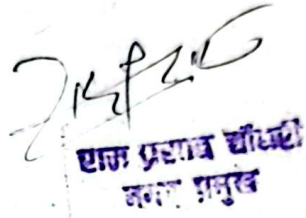 राम प्रसाद चौधरी
नगर प्रमुख